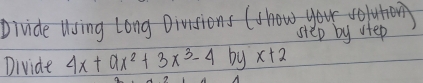 Divide Using Long Divisions (show your solution)
step by step
Divide 4x + 9x² + 3x³ - 4 by x+2